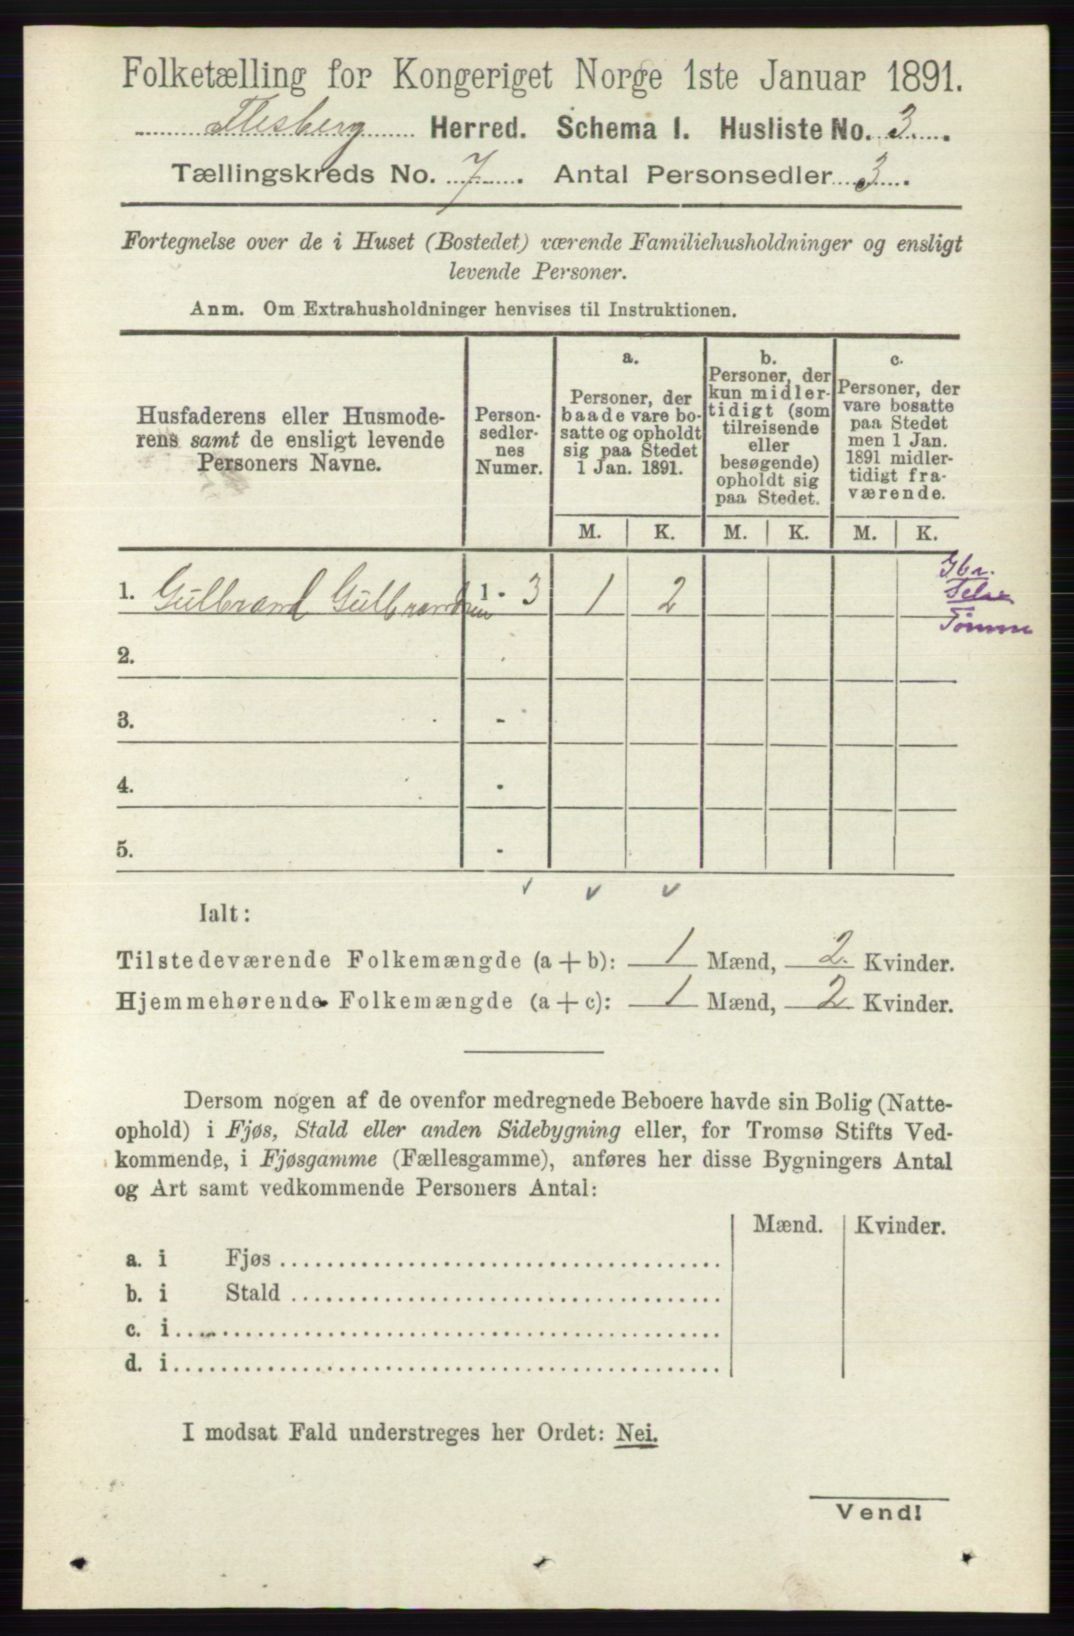 Folketælling for Kongeriget Norge 1ste Januar 1891.
Flesberg Herred. Schema I. Husliste No. 3.
Tællingskreds No. 7. Antal Personsedler 3.
Fortegnelse over de i Huset (Bostedet) værende Familiehusholdninger og ensligt
levende Personer.
Anm. Om Extrahusholdninger henvises til Instruktionen.
Husfaderens eller Husmode-
rens samt de ensligt levende
Personers Navne.
Person-
sedler-
nes
Numer.
a.
Personer, der
baade vare bo-
satte og opholdt
sig paa Stedet
1 Jan. 1891.
b.
Personer, der
kun midler-
tidigt (som
tilreisende
eller
besøgende)
opholdt sig
paa Stedet.
c.
Personer, der
vare bosatte
paa Stedet
men 1 Jan.
1891 midler-
tidigt fra-
værende.
M. K. M. K. M. K.
1. Gulbrand Gulbrandsen 1 - 3 1 2
Gbr.
Selv
2.
3. -
4. -
5. -
Ialt:
Tilstedeværende Folkemængde (a + b): 1 Mænd, 2 Kvinder.
Hjemmehørende Folkemængde (a + c): 1 Mænd, 2 Kvinder.
Dersom nogen af de ovenfor medregnede Beboere havde sin Bolig (Natte-
ophold) i Fjøs, Stald eller anden Sidebygning eller, for Tromsø Stifts Ved-
kommende, i Fjøsgamme (Fællesgamme), anføres her disse Bygningers Antal
og Art samt vedkommende Personers Antal:
Mænd. Kvinder.
a. i Fjøs
b. i Stald
c. i
d. i
I modsat Fald understreges her Ordet: Nei.
Vend!